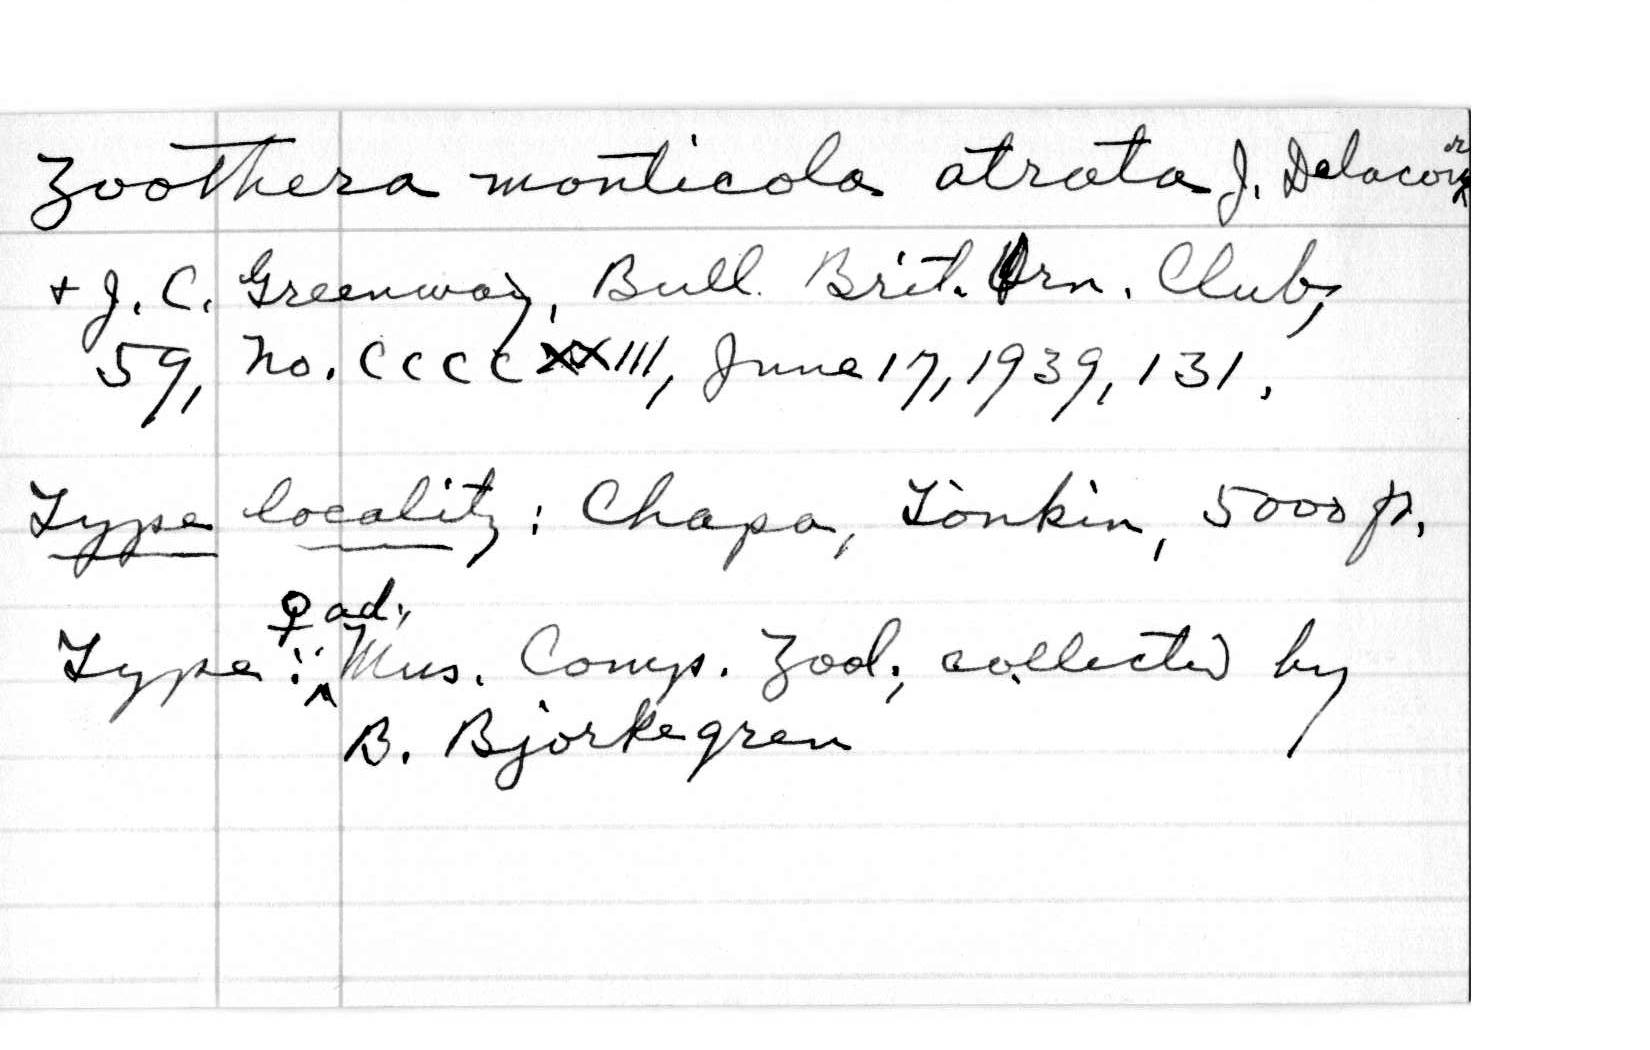 Zoothera monticola atrata J. Delacour
+ J. C. Greenway, Bull. Brit. Orn. Club,
59, No. CCCCXXIII, June 17, 1939, 131.
Type locality: Chapa, Tonkin, 5000 ft.
♀ ad.,
Type: Mus. Comp. Zool.; collected by
B. Bjorkegren